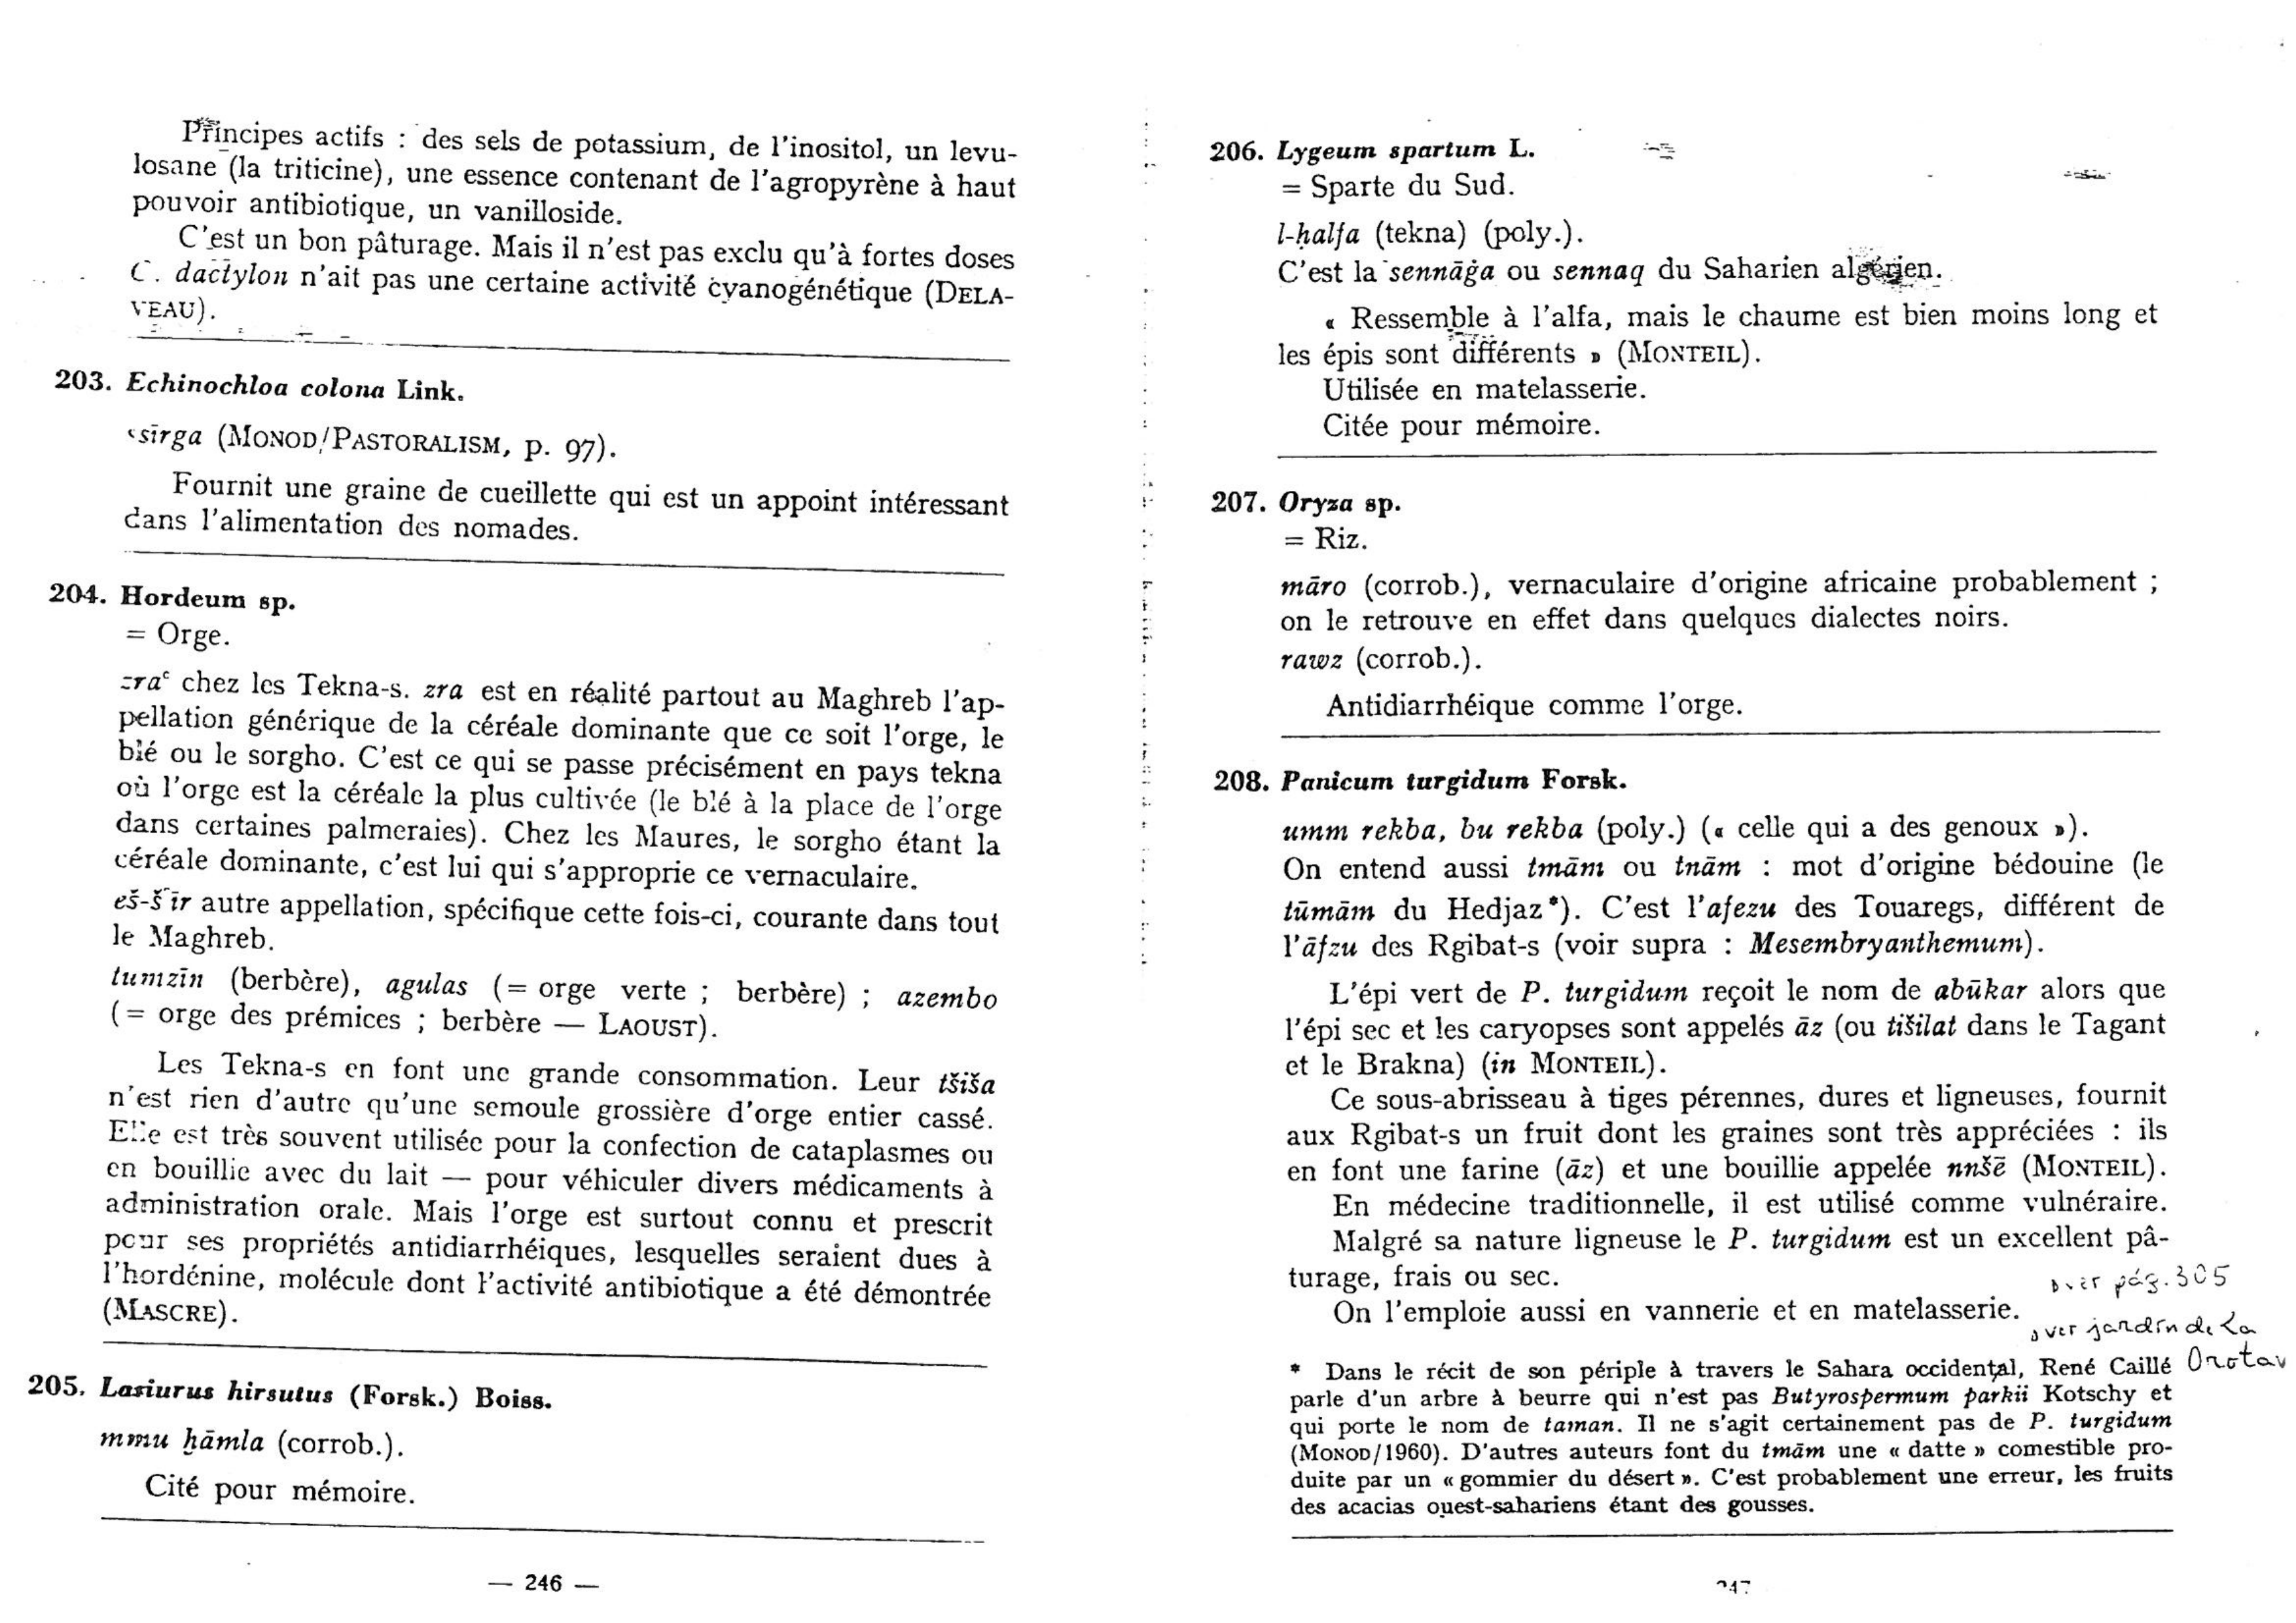 Principes actifs : des sels de potassium, de l'inositol, un levu-
losane (la triticine), une essence contenant de l'agropyrène à haut
pouvoir antibiotique, un vanilloside.
C'est un bon pâturage. Mais il n'est pas exclu qu'à fortes doses
C. dactylon n'ait pas une certaine activité cyanogénétique (DELA-
VEAU).
203. Echinochloa colona Link.
ʿsīrga (MONOD/PASTORALISM, p. 97).
Fournit une graine de cueillette qui est un appoint intéressant
dans l'alimentation des nomades.
204. Hordeum sp.
= Orge.
zraʿ chez les Tekna-s. zra est en réalité partout au Maghreb l'ap-
pellation générique de la céréale dominante que ce soit l'orge, le
blé ou le sorgho. C'est ce qui se passe précisément en pays tekna
où l'orge est la céréale la plus cultivée (le blé à la place de l'orge
dans certaines palmeraies). Chez les Maures, le sorgho étant la
céréale dominante, c'est lui qui s'approprie ce vernaculaire.
eš-šʿīr autre appellation, spécifique cette fois-ci, courante dans tout
le Maghreb.
tumzīn (berbère), agulas (= orge verte ; berbère) ; azembo
(= orge des prémices ; berbère — LAOUST).
Les Tekna-s en font une grande consommation. Leur tšiša
n'est rien d'autre qu'une semoule grossière d'orge entier cassé.
Elle est très souvent utilisée pour la confection de cataplasmes ou
en bouillie avec du lait — pour véhiculer divers médicaments à
administration orale. Mais l'orge est surtout connu et prescrit
pour ses propriétés antidiarrhéiques, lesquelles seraient dues à
l'hordénine, molécule dont l'activité antibiotique a été démontrée
(MASCRE).
205. Lasiurus hirsutus (Forsk.) Boiss.
mmu ḫāmla (corrob.).
Cité pour mémoire.
— 246 —
206. Lygeum spartum L.
= Sparte du Sud.
l-ḥalfa (tekna) (poly.).
C'est la sennāġa ou sennaq du Saharien algérien.
« Ressemble à l'alfa, mais le chaume est bien moins long et
les épis sont différents » (MONTEIL).
Utilisée en matelasserie.
Citée pour mémoire.
207. Oryza sp.
= Riz.
māro (corrob.), vernaculaire d'origine africaine probablement ;
on le retrouve en effet dans quelques dialectes noirs.
rawz (corrob.).
Antidiarrhéique comme l'orge.
208. Panicum turgidum Forsk.
umm rekba, bu rekba (poly.) (« celle qui a des genoux »).
On entend aussi tmām ou tnām : mot d'origine bédouine (le
tūmām du Hedjaz*). C'est l'afezu des Touaregs, différent de
l'āfzu des Rgibat-s (voir supra : Mesembryanthemum).
L'épi vert de P. turgidum reçoit le nom de abūkar alors que
l'épi sec et les caryopses sont appelés āz (ou tišilat dans le Tagant
et le Brakna) (in MONTEIL).
Ce sous-abrisseau à tiges pérennes, dures et ligneuses, fournit
aux Rgibat-s un fruit dont les graines sont très appréciées : ils
en font une farine (āz) et une bouillie appelée nnšē (MONTEIL).
En médecine traditionnelle, il est utilisé comme vulnéraire.
Malgré sa nature ligneuse le P. turgidum est un excellent pâ-
turage, frais ou sec.
ver pág. 305
On l'emploie aussi en vannerie et en matelasserie.
ver jardín de La
Orotav
* Dans le récit de son périple à travers le Sahara occidental, René Caillé
parle d'un arbre à beurre qui n'est pas Butyrospermum parkii Kotschy et
qui porte le nom de taman. Il ne s'agit certainement pas de P. turgidum
(MONOD/1960). D'autres auteurs font du tmām une « datte » comestible pro-
duite par un « gommier du désert ». C'est probablement une erreur, les fruits
des acacias ouest-sahariens étant des gousses.
247